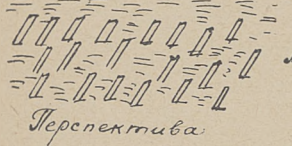 Перспектива